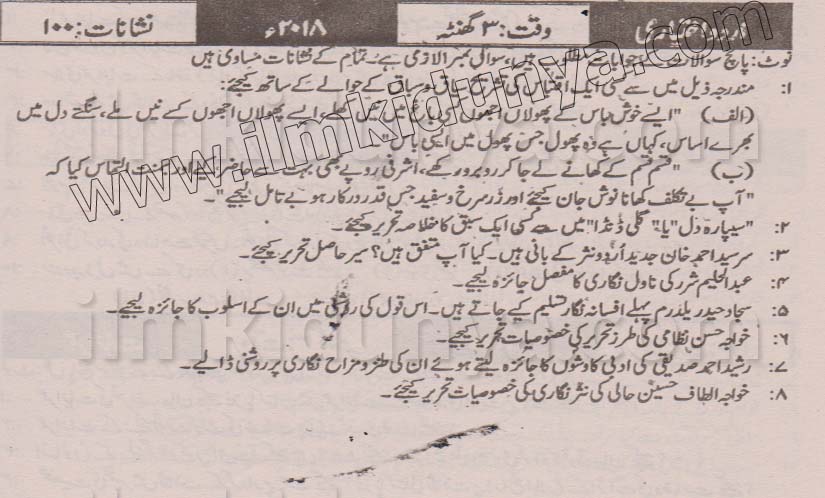 وقت: ۳ گھنٹہ ۲۰۱۸ء نشانات: ۱۰۰
نوٹ: پانچ سوالات کے جوابات سوال نمبر ۱ لازمی ہے، تمام کے نشانات مساوی ہیں
۱: مندرجہ ذیل میں سے کسی ایک اقتباس کی تشریح سیاق و سباق کے حوالے کے ساتھ کیجئے:
(الف) "ایسے خوش باس کے پھولاں اجھوں کی باغ میں نیں کھلے، ایسے پھولاں اجھوں کسے نیں ملے، سنگتے دل میں
بھرے اساس، کہاں ہے وہ پھول جس پھول میں ایسی باس"
(ب) "قسم قسم کے کھانے لے جا کر روبرو رکھے، اشرفی روپے بھی بہت سے حاضر کئے اور بمنت التماس کیا کہ
"آپ بے تکلف کھانا نوش جان کیجئے اور زر سرخ و سفید جس قدر درکار ہو بے تامل لیجیے"۔
۲: "سیپارہ دل" یا "گلی ڈنڈا" میں سے کسی ایک سبق کا خلاصہ تحریر کیجئے۔
۳: سرسید احمد خان جدید اُردو نثر کے بانی ہیں۔ کیا آپ متفق ہیں؟ سیر حاصل تحریر کیجئے۔
۴: عبدالحلیم شرر کی ناول نگاری کا مفصل جائزہ لیجیے۔
۵: سجاد حیدر یلدرم پہلے افسانہ نگار تسلیم کیے جاتے ہیں۔ اس قول کی روشنی میں ان کے اسلوب کا جائزہ لیجیے۔
۶: خواجہ حسن نظامی کی طرز تحریر کی خصوصیات تحریر کیجیے۔
۷: رشید احمد صدیقی کی ادبی کاوشوں کا جائزہ لیتے ہوئے ان کی طنز و مزاح نگاری پر روشنی ڈالیے۔
۸: خواجہ الطاف حسین حالی کی نثر نگاری کی خصوصیات تحریر کیجئے۔
www.ilmkidunya.com
ilmkidunya.com
ilmkidunya.com